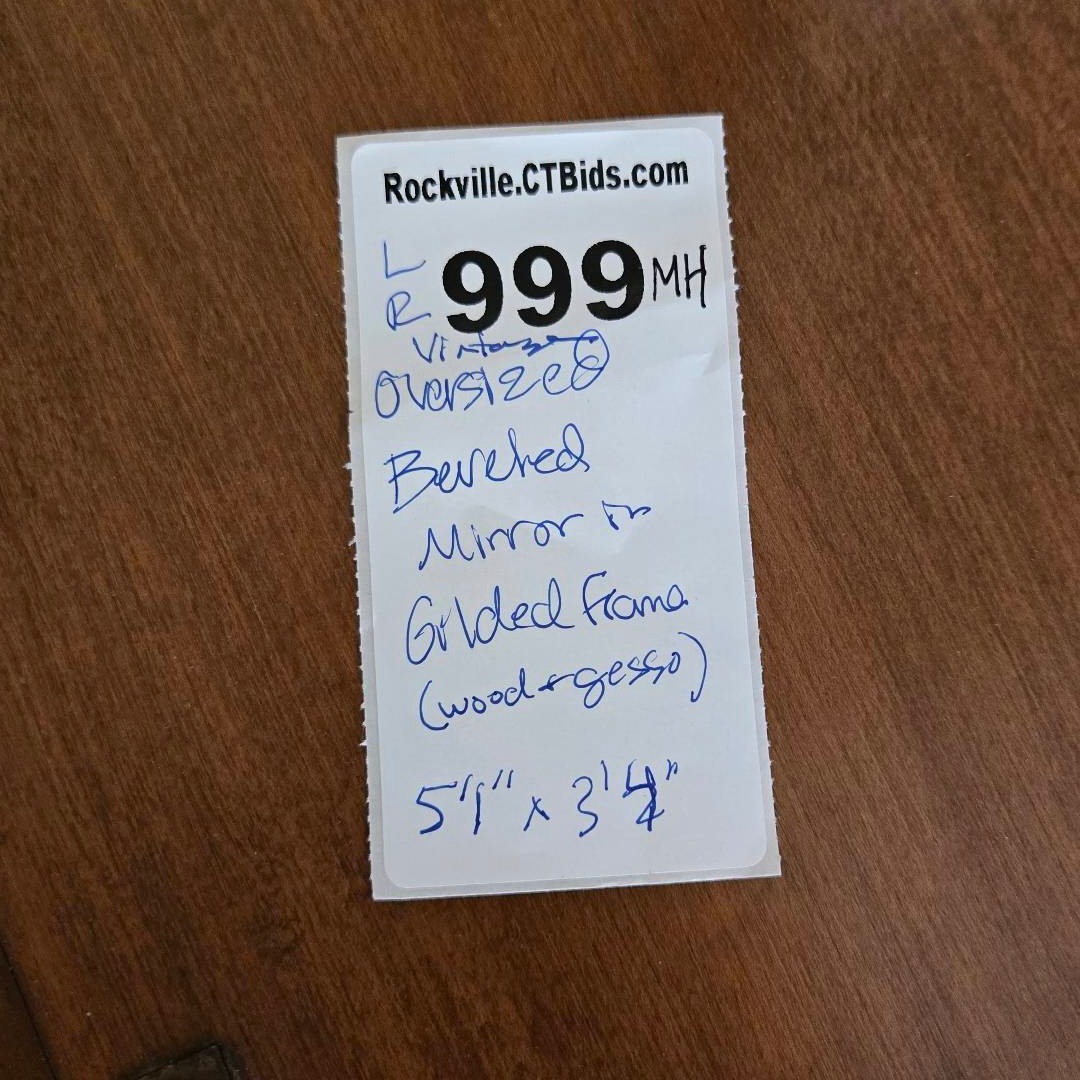 Rockville.CTBids.com
L 999 MH
R
Vintage
Oversized
Beveled
Mirror in
Gilded Frame
(wood + gesso)
5'1" x 3'4"